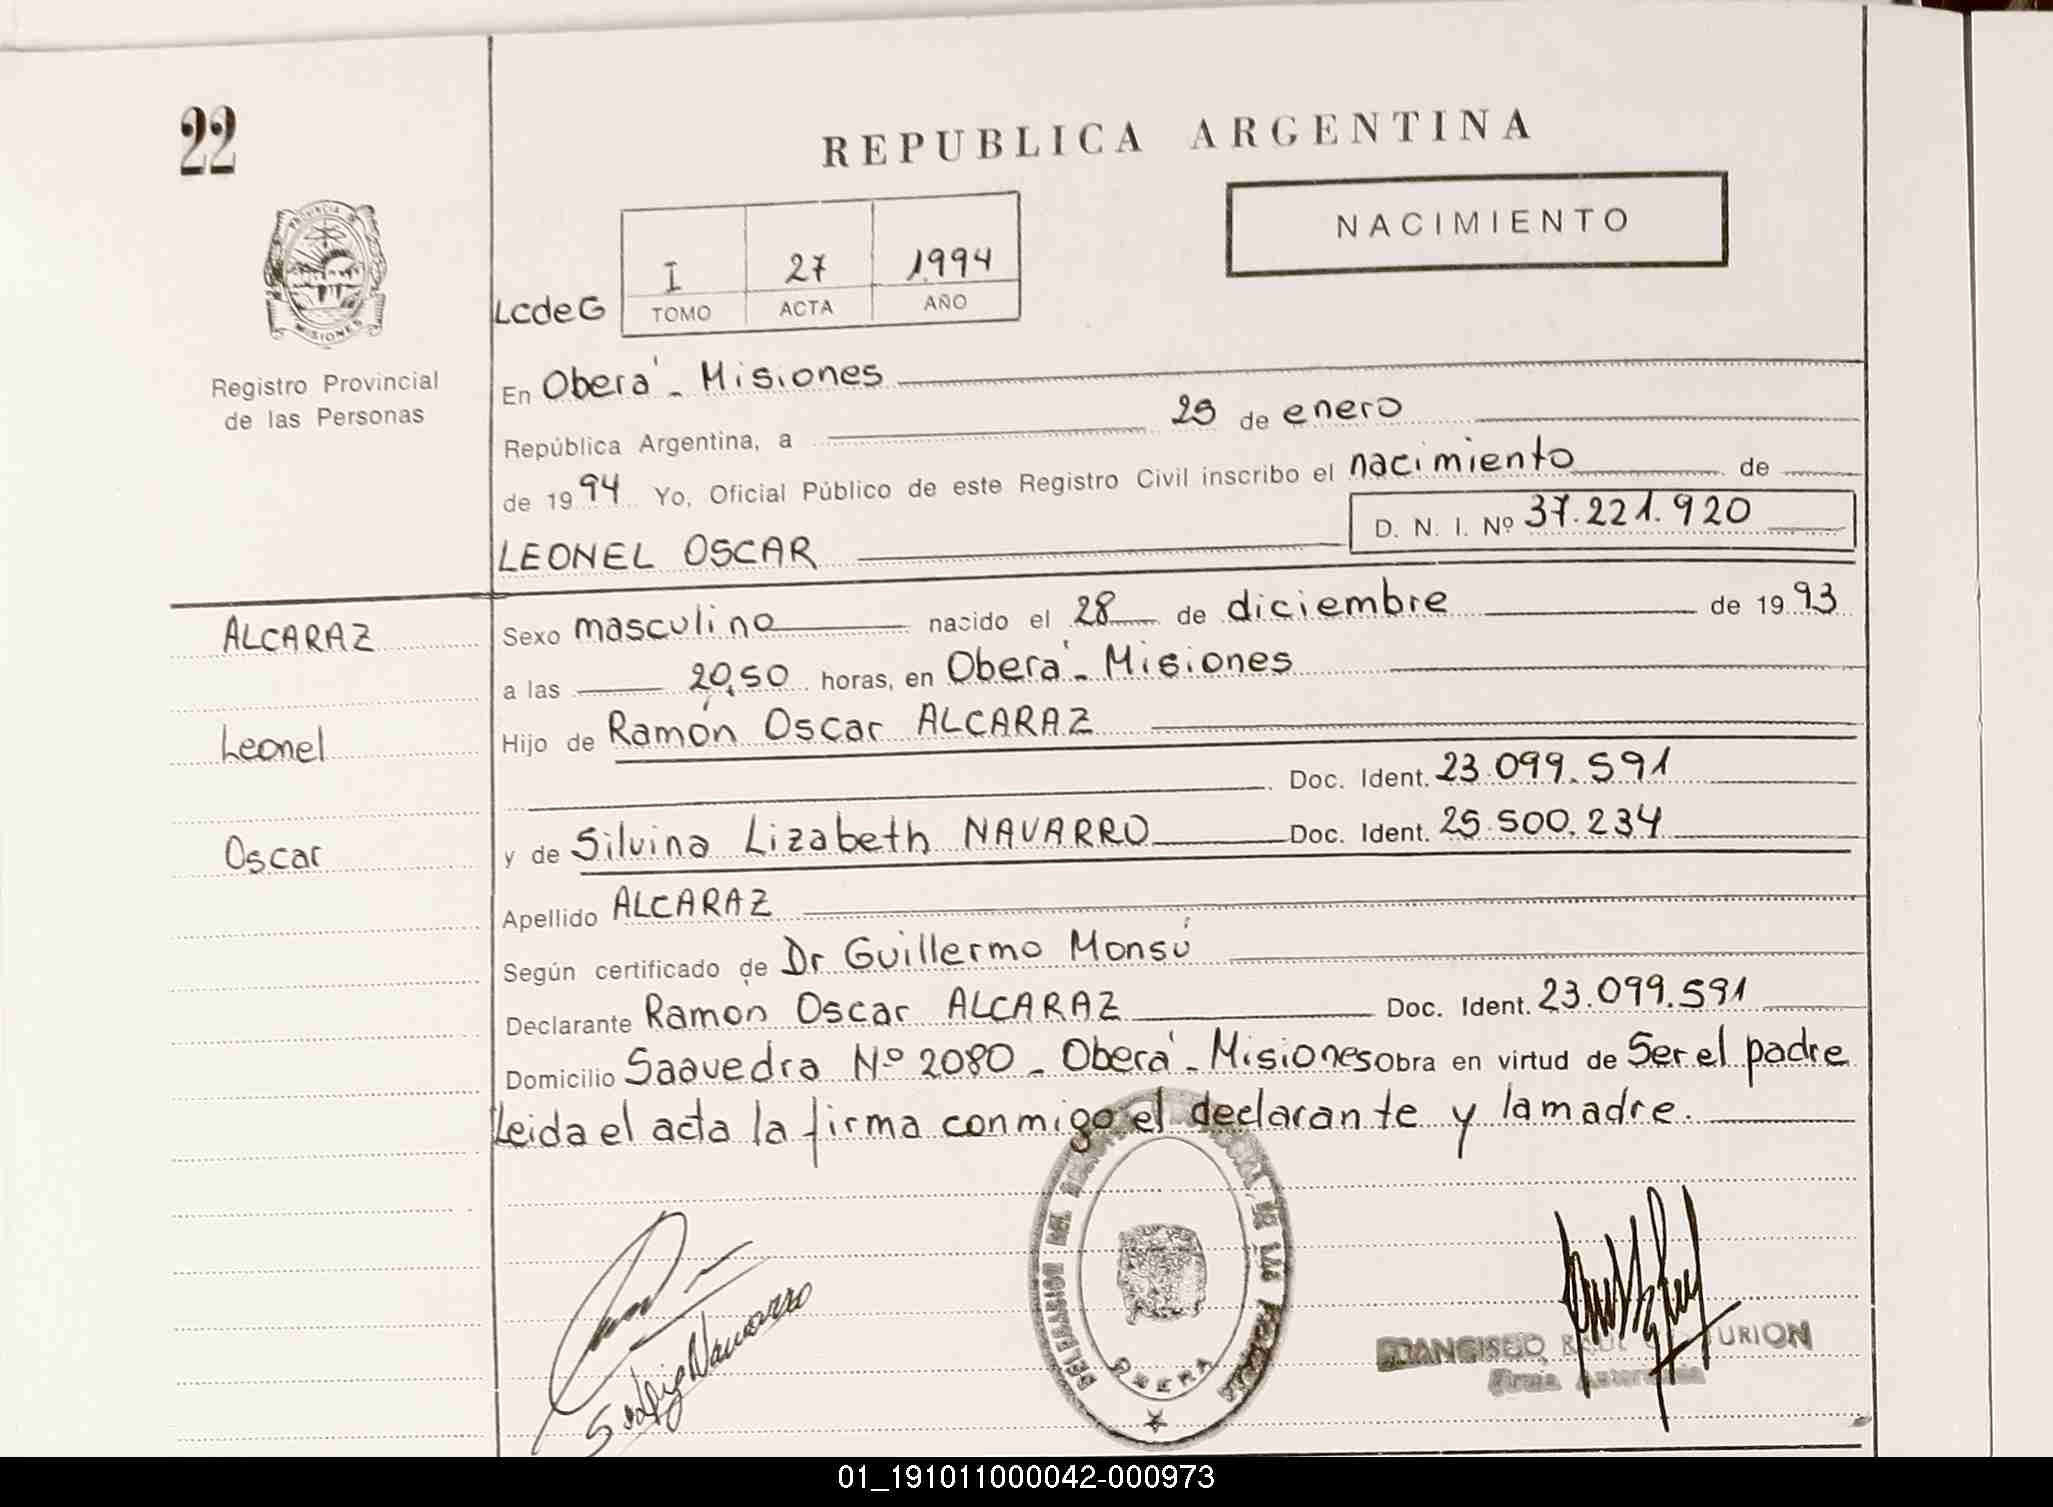 22
REPUBLICA ARGENTINA
NACIMIENTO
PROVINCIA DE
MISIONES
Registro Provincial
de las Personas
LcdeG
I 27 1994
TOMO ACTA AÑO
En Oberá - Misiones
República Argentina, a 25 de enero
de 1994 Yo, Oficial Público de este Registro Civil inscribo el nacimiento de
LEONEL OSCAR D. N. I. Nº 37.221.920
ALCARAZ
Leonel
Oscar
Sexo masculino nacido el 28 de diciembre de 1993
a las 20,50 horas, en Oberá - Misiones
Hijo de Ramón Oscar ALCARAZ
Doc. Ident. 23.099.591
y de Silvina Lizabeth NAVARRO Doc. Ident. 25.500.234
Apellido ALCARAZ
Según certificado de Dr Guillermo Monsú
Declarante Ramón Oscar ALCARAZ Doc. Ident. 23.099.591
Domicilio Saavedra Nº 2080 - Oberá - Misiones Obra en virtud de Ser el padre
Leida el acta la firma conmigo el declarante y la madre.
OBERA
Navarro
FRANCISCO RAUL URION
Firma Autorizada
01_191011000042-000973